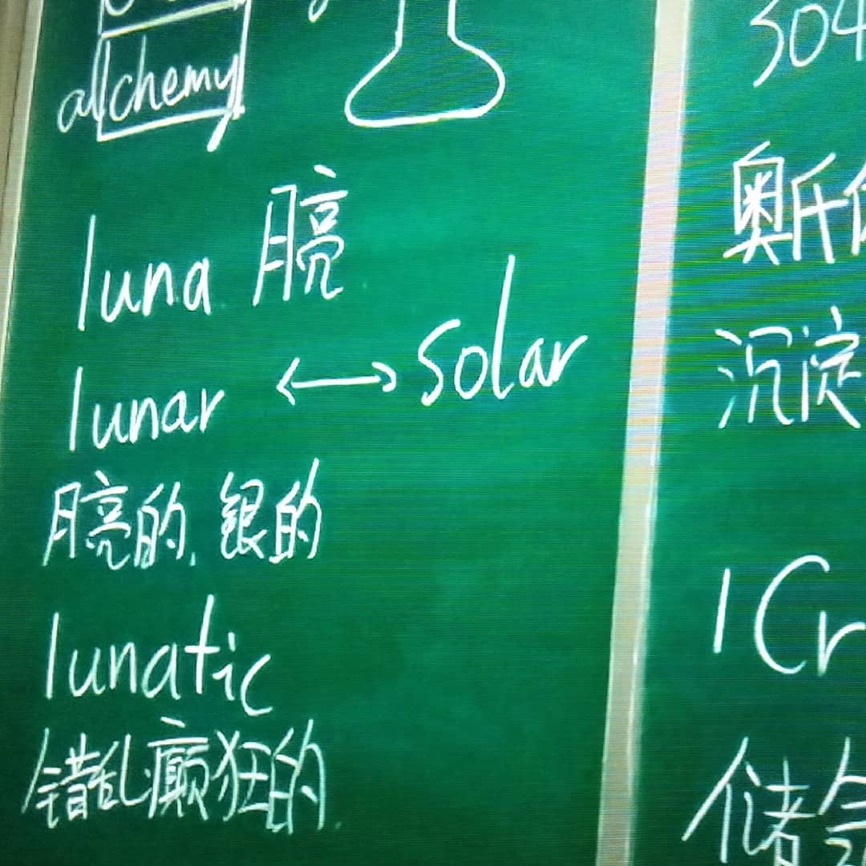 alchemy
luna 月亮
lunar ⟷ solar
月亮的, 银的
lunatic
错乱癫狂的.
304
奥氏
沉淀
1Cr
储